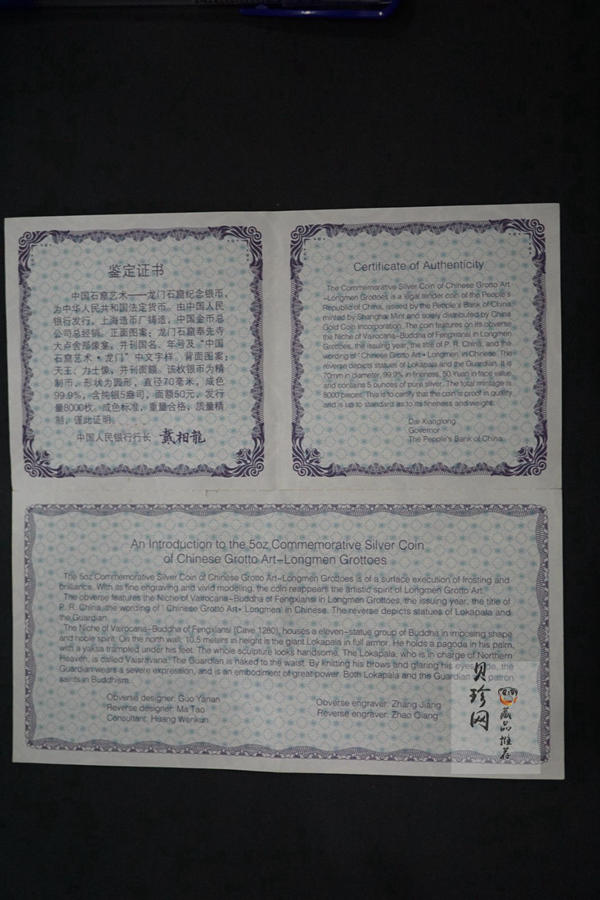 鉴定证书
中国石窟艺术——龙门石窟纪念银币,
为中华人民共和国法定货币。由中国人民
银行发行,上海造币厂铸造,中国金币总
公司总经销。正面图案:龙门石窟奉先寺
大卢舍那像龛,并刊国名、年号及“中国
石窟艺术·龙门”中文字样。背面图案:
天王、力士像,并刊面额。该枚银币为精
制币,形状为圆形,直径70毫米,成色
99.9%,含纯银5盎司,面额50元,发行
量8000枚。成色标准,重量合格,质量精
制,谨此证明。
中国人民银行行长 戴相龍
Certificate of Authenticity
The Commemorative Silver Coin of Chinese Grotto Art
-Longmen Grottoes is a legal tender coin of the People's
Republic of China, issued by the People's Bank of China,
minted by Shanghai Mint and solely distributed by China
Gold Coin Incorporation. The coin features on its obverse
the Niche of Vairocana-Buddha of Fengxians in Longmen
Grottoes, the issuing year, the title of P. R. China, and the
wording of "Chinese Grotto Art• Longmen" in Chinese. The
reverse depicts statues of Lokapala and the Guardian. It is
70mm in diameter, 99.9% in fineness, 50 Yuan in face value
and contains 5 ounces of pure silver. The total mintage is
8000 pieces. This is to certify that the coin is proof in quality
and is up to standard as to its fineness and weight.
Dai Xianglong
Governor
The People's Bank of China
An Introduction to the 5oz Commemorative Silver Coin
of Chinese Grotto Art-Longmen Grottoes
The 5oz Commemorative Silver Coin of Chinese Grotto Art-Longmen Grottoes is of a surface execution of frosting and
brilliance. With its fine engraving and vivid modeling, the coin reappears the artistic spirit of Longmen Grotto Art.
The obverse features the Niche of Vairocana-Buddha of Fengxians in Longmen Grottoes, the issuing year, the title of
P. R. China, the wording of "Chinese Grotto Art• Longmen" in Chinese. The reverse depicts statues of Lokapala and
the Guardian.
The Niche of Vairocana-Buddha of Fengxians (Cave 1280), houses a eleven-statue group of Buddha in imposing shape
and noble spirit. On the north wall, 10.5 meters in height is the giant Lokapala in full armor. He holds a pagoda in his palm,
with a yaksa trampled under his feet. The whole sculpture looks handsome. The Lokapala, who is in charge of Northern
Heaven, is called Vaisravana. The Guardian is naked to the waist. By knitting his brows and glaring his eyes wide, the
Guardian wears a severe expression, and is an embodiment of great power. Both Lokapala and the Guardian are patron
saints in Buddhism.
Obverse designer: Guo Yanan
Reverse designer: Ma Tao
Consultant: Huang Wenkun
Obverse engraver: Zhang Jiang
Reverse engraver: Zhao Qiang
贝珍网
藏品推荐